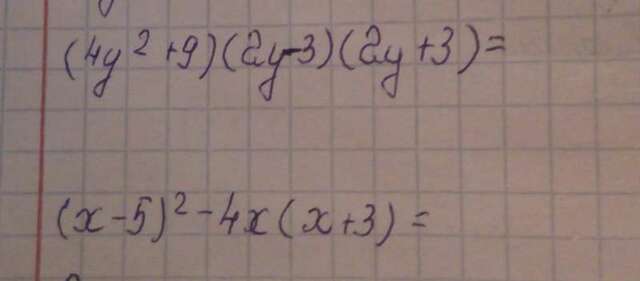 (4y² + 9)(2y - 3)(2y + 3) =
(x - 5)² - 4x(x + 3) =